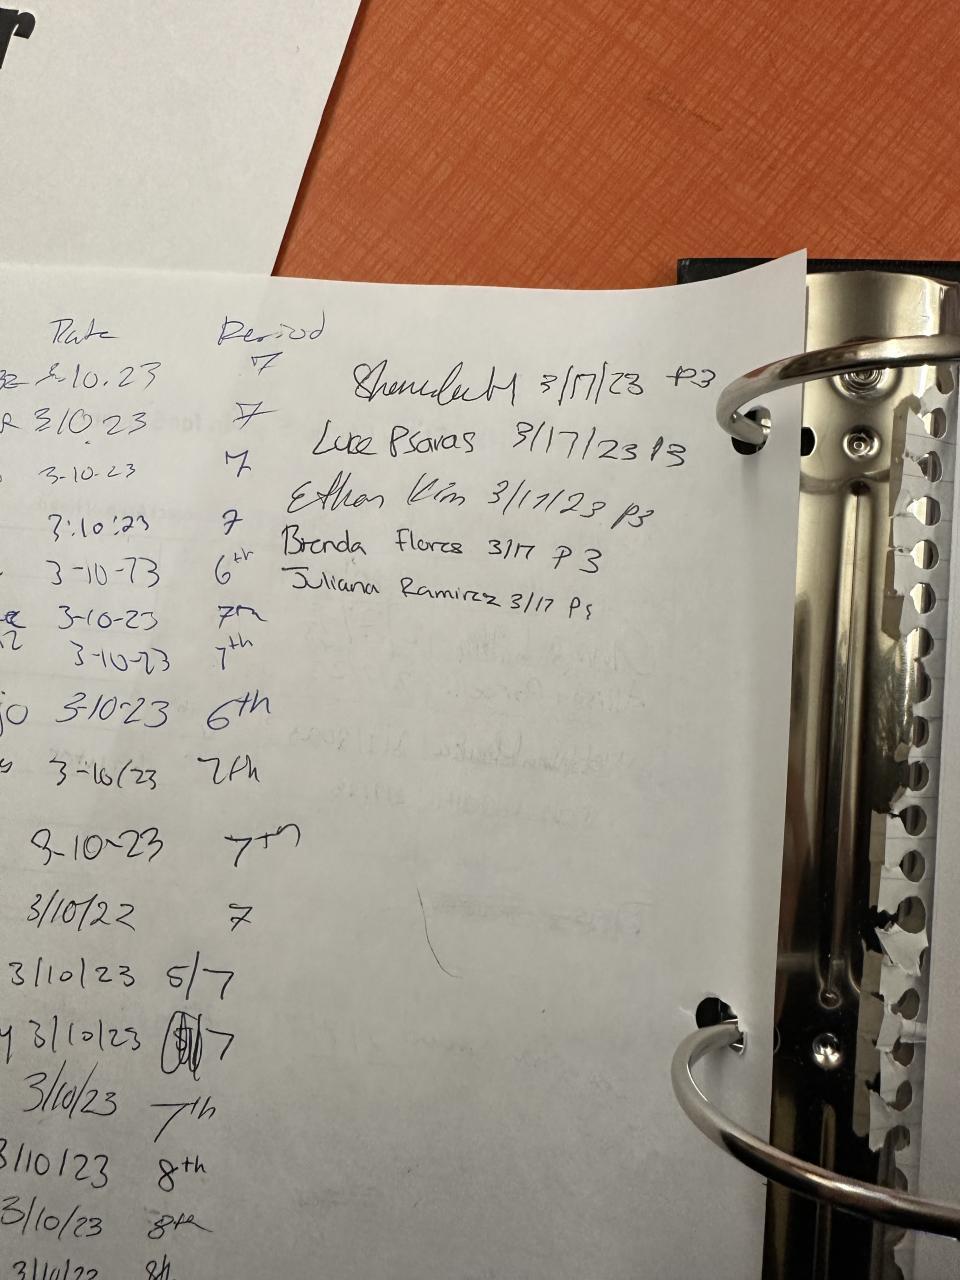 Date Period
3-10.23 7
3/0.23 7
3-10-23 7
3:10:23 7
3-10-23 6th
3-10-23 7th
3-10-23 7th
jo 3-10-23 6th
3-10/23 7th
3-10-23 7th
3/10/22 7
3/10/23 5/7
y 3/10/23 7
3/10/23 7th
3/10/23 8th
3/10/23 8th
3/17/23 P3
Luke Psaras 3/17/23 P3
Ethan Kim 3/17/23 P3
Brenda Flores 3/17 P 3
Juliana Ramirez 3/17